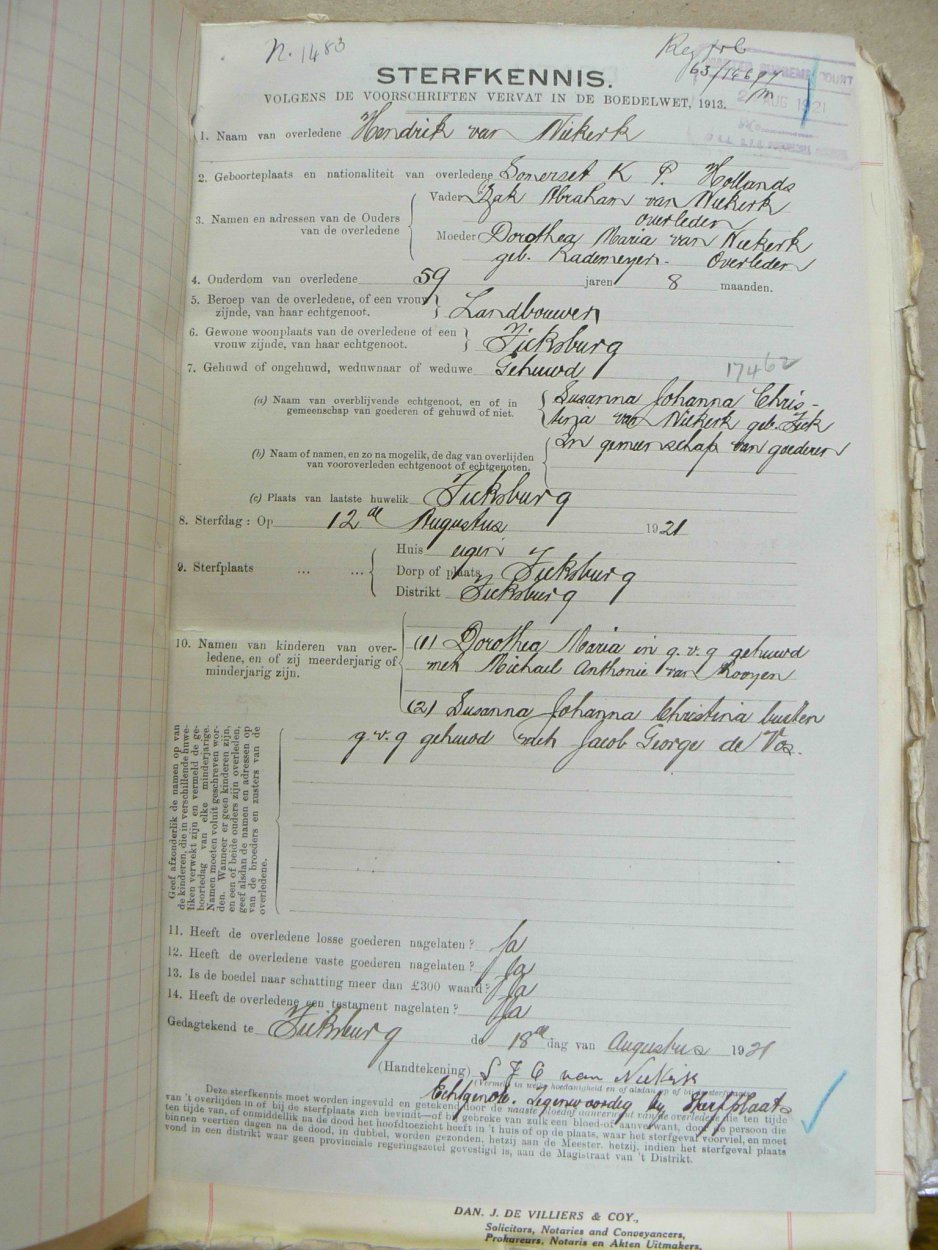 N. 1483
63/16697
MASTER SUPREME COURT
AUG 1921
STERFKENNIS.
VOLGENS DE VOORSCHRIFTEN VERVAT IN DE BOEDELWET, 1913.
1. Naam van overledene Hendrik van Niekerk
2. Geboorteplaats en nationaliteit van overledene Somerset K P. Hollands
Vader Izak Abraham van Niekerk
overleden
3. Namen en adressen van de Ouders
van de overledene
Moeder Dorothea Maria van Niekerk
geb. Rademeyer. Overleden
4. Ouderdom van overledene 59 jaren 8 maanden.
5. Beroep van de overledene, of een vrouw
zijnde, van haar echtgenoot. Landbouwer
6. Gewone woonplaats van de overledene of een
vrouw zijnde, van haar echtgenoot. Ficksburg
7. Gehuwd of ongehuwd, weduwnaar of weduwe Gehuwd
17462
(a) Naam van overblijvende echtgenoot, en of in
gemeenschap van goederen of gehuwd of niet.
Susanna Johanna Chris-
tina van Niekerk geb. Fick
in gemeenschap van goederen
(b) Naam of namen, en zo na mogelik, de dag van overlijden
van vooroverleden echtgenoot of echtgenoten.
(c) Plaats van laatste huwelik Ficksburg
8. Sterfdag: Op 12de Augustus 1921
9. Sterfplaats ... ...
Huis eigen
Dorp of plaats Ficksburg
Distrikt Ficksburg
10. Namen van kinderen van over-
ledene, en of zij meerderjarig of
minderjarig zijn.
(1) Dorothea Maria in g.v.g gehuwd
met Michael Anthonie van Rooyen
(2) Susanna Johanna Christina buiten
g.v.g gehuwd met Jacob George de Vos.
Geef afzonderlik de namen op van
de kinderen, die in verschillende huwe-
liken verwekt zijn en vermeld de ge-
boortedag van elke minderjarige.
Namen moeten voluit geschreven wor-
den. Wanneer er geen kinderen zijn,
en een of beide ouders zijn overleden,
geef alsdan de namen en adressen op
van de broeders en zusters van de
overledene.
11. Heeft de overledene losse goederen nagelaten? Ja
12. Heeft de overledene vaste goederen nagelaten? Ja
13. Is de boedel naar schatting meer dan £300 waard? Ja
14. Heeft de overledene een testament nagelaten? Ja
Gedagtekend te Ficksburg de 18de dag van Augustus 1921
(Handtekening) S J C van Niekerk
Echtgenote. Tegenwoordig bij Sterfplaats
Deze sterfkennis moet worden ingevuld en getekend door de naaste bloed of aanverwant van de overledene die ten tijde
van 't overlijden in of bij de sterfplaats zich bevindt—of bij gebreke van zulk een bloed-of aanverwant, door de persoon die
ten tijde van, of onmiddellik na de dood het hoofdtoezicht heeft in 't huis of op de plaats, waar het sterfgeval voorviel, en moet
binnen veertien dagen na de dood, in dubbel, worden gezonden, hetzij aan de Meester, hetzij, indien het sterfgeval plaats
vond in een distrikt waar geen provinciale regeringszetel gevestigd is, aan de Magistraat van 't Distrikt.
DAN. J. DE VILLIERS & COY.,
Solicitors, Notaries and Conveyancers,
Prokureurs, Notaris en Akten Uitmakers,